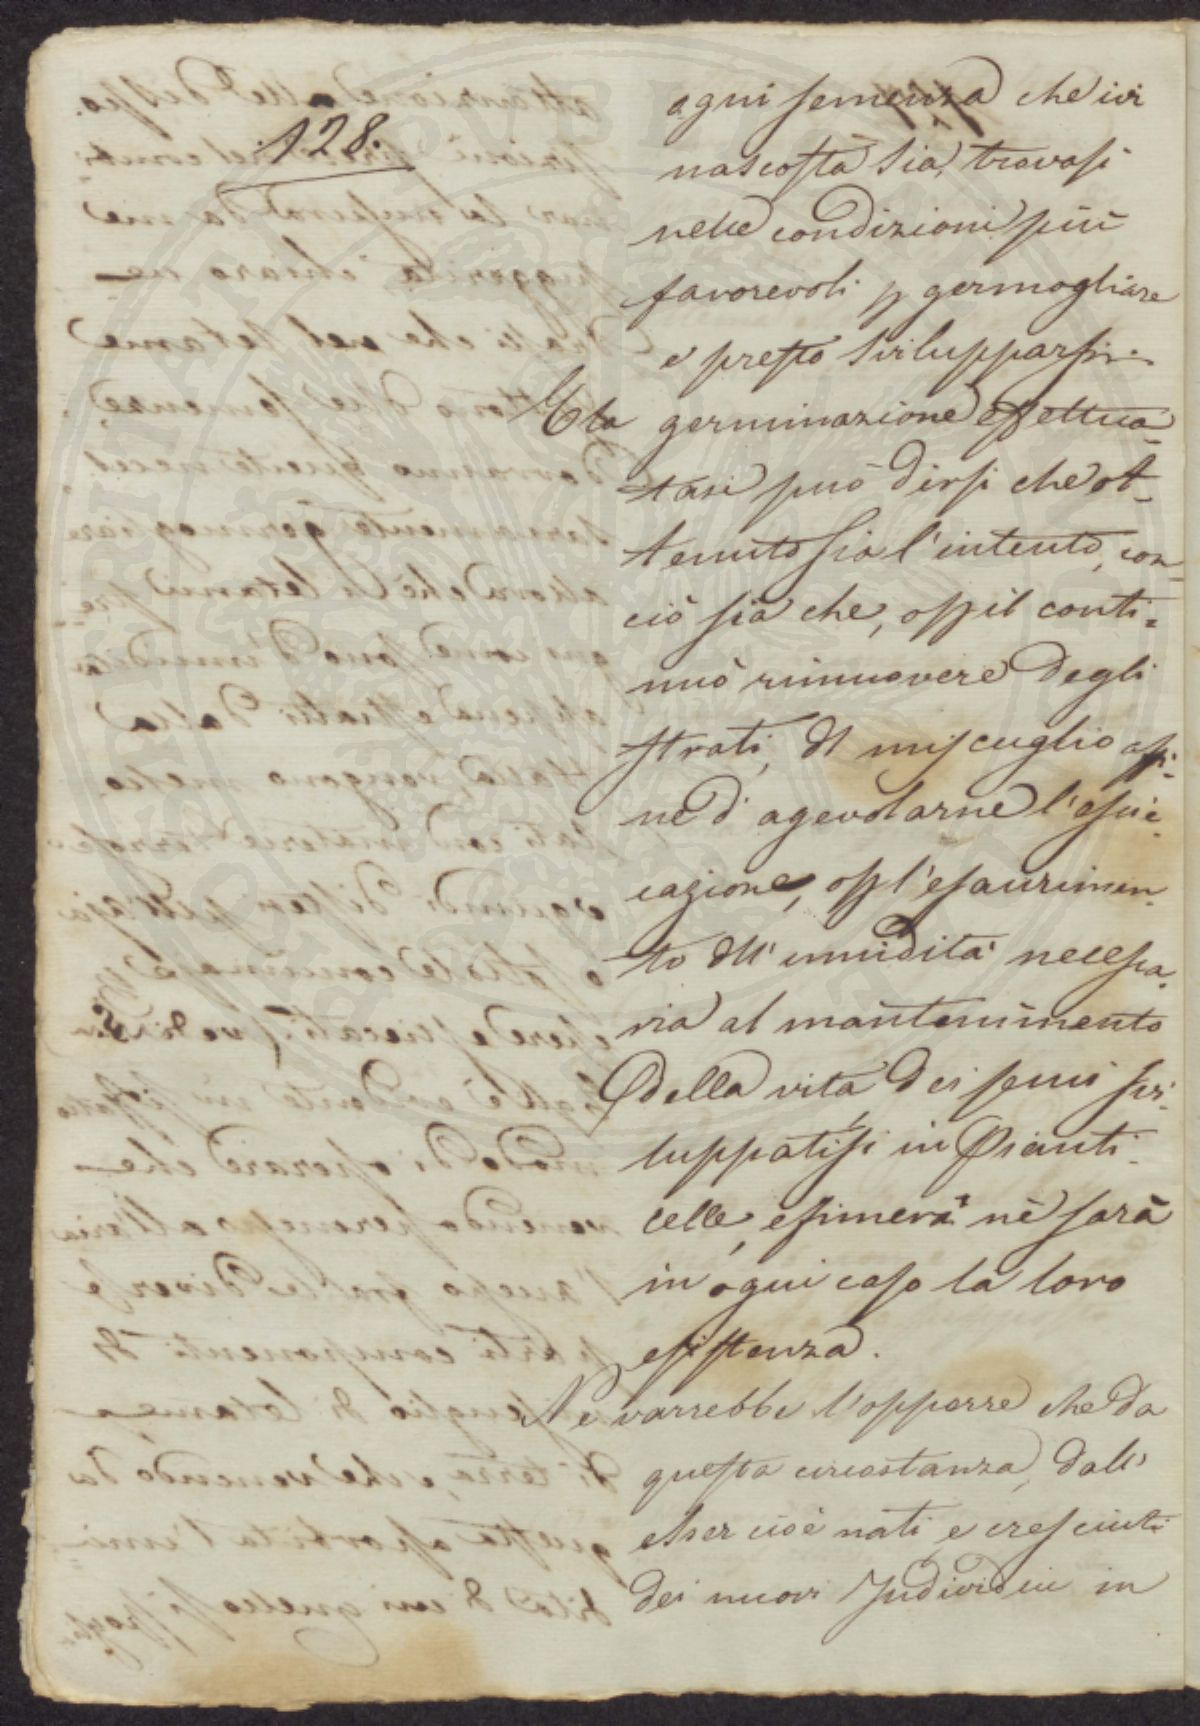 128.
ogni semenza che ivi
nascosta sia, trovasi
nelle condizioni più
favorevoli p germogliare
e presto svilupparsi.
E la germinazione effettua-
tasi può dirsi che ot-
tenuto sia l'intento, con-
ciò sia che, o p il conti-
nuò rimuovere degli
strati, dl miscuglio affi-
ne d'agevolarne l'essic-
cazione, o p l'esaurimen-
to dll' umidità necessa-
ria al mantenimento
della vita dei semi svi-
luppatisi in Pianti-
celle, effimera nè sarà
in ogni caso la loro
esistenza.
Ne varrebbe l'opporre che da
questa circostanza, dall'
esser cioè nati, e cresciuti
dei nuovi Individui in